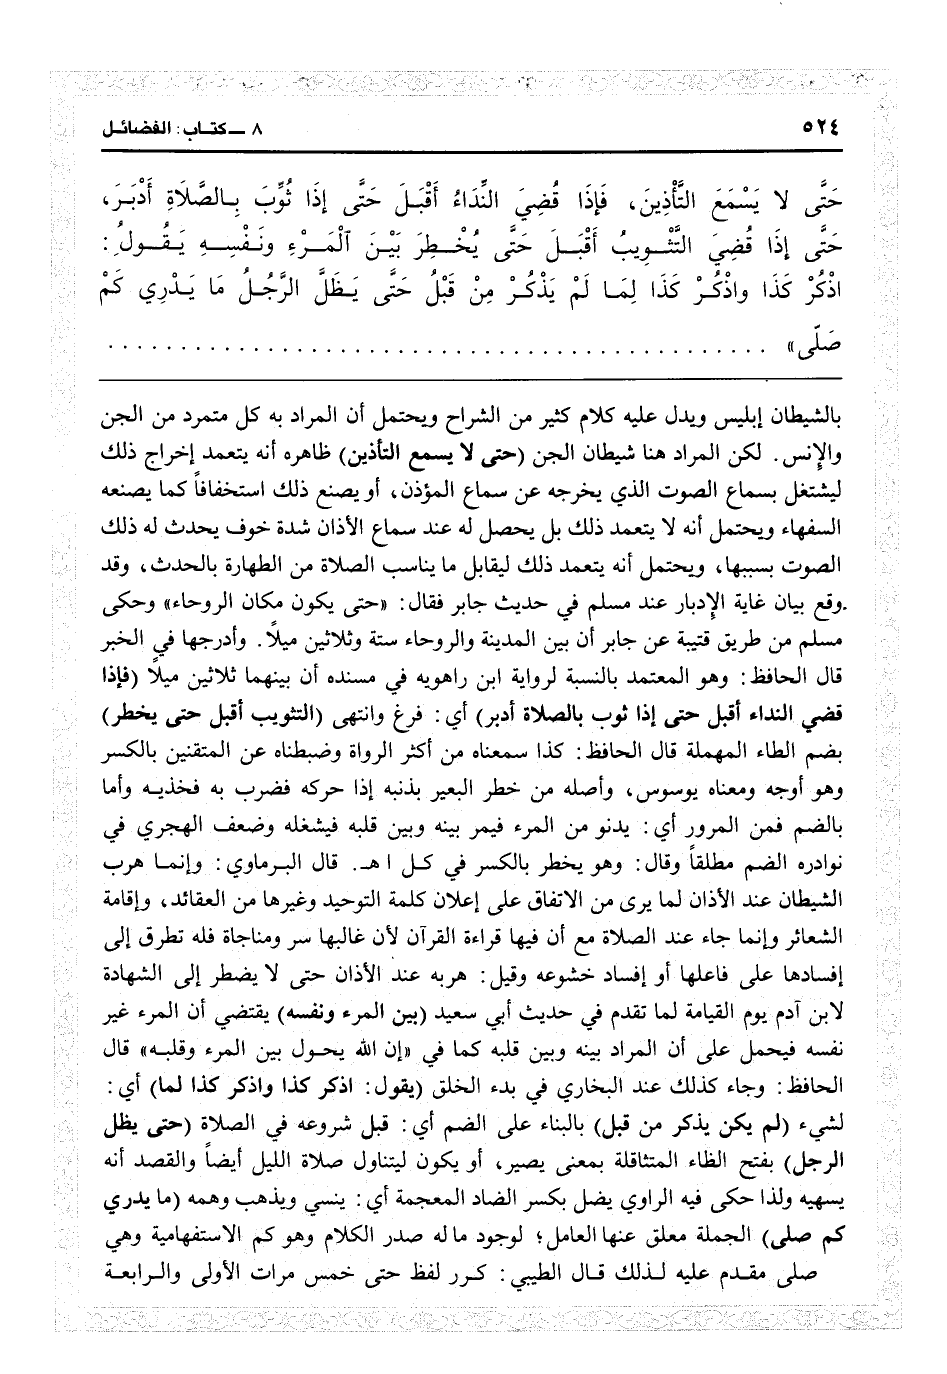 ٥٢٤ ٨ ـ كتاب: الفضائل
حَتَّى لا يَسْمَعَ التَّأْذِينَ، فَإِذَا قُضِيَ النِّدَاءُ أَقْبَلَ حَتَّى إِذَا ثُوِّبَ بِالصَّلَاةِ أَدْبَرَ،
حَتَّى إِذَا قُضِيَ التَّثْوِيبُ أَقْبَلَ حَتَّى يُخْطِرَ بَيْنَ ٱلْمَرْءِ وَنَفْسِهِ يَقُولُ:
اذْكُرْ كَذَا واذْكُرْ كَذَا لِمَا لَمْ يَذْكُرْ مِنْ قَبْلُ حَتَّى يَظَلَّ الرَّجُلُ مَا يَدْرِي كَمْ
صَلَّى» . . . . . . . . . . . . . . . . . . . . . . . . . . . . . . . . . . . . . . . . . . . . . .
بالشيطان إبليس ويدل عليه كلام كثير من الشراح ويحتمل أن المراد به كل متمرد من الجن
والإنس. لكن المراد هنا شيطان الجن (حتى لا يسمع التأذين) ظاهره أنه يتعمد إخراج ذلك
ليشتغل بسماع الصوت الذي يخرجه عن سماع المؤذن، أو يصنع ذلك استخفافاً كما يصنعه
السفهاء ويحتمل أنه لا يتعمد ذلك بل يحصل له عند سماع الأذان شدة خوف يحدث له ذلك
الصوت بسببها، ويحتمل أنه يتعمد ذلك ليقابل ما يناسب الصلاة من الطهارة بالحدث، وقد
وقع بيان غاية الإدبار عند مسلم في حديث جابر فقال: «حتى يكون مكان الروحاء» وحكى
مسلم من طريق قتيبة عن جابر أن بين المدينة والروحاء ستة وثلاثين ميلاً. وأدرجها في الخبر
قال الحافظ: وهو المعتمد بالنسبة لرواية ابن راهويه في مسنده أن بينهما ثلاثين ميلاً (فإذا
قضي النداء أقبل حتى إذا ثوب بالصلاة أدبر) أي: فرغ وانتهى (التثويب أقبل حتى يخطر)
بضم الطاء المهملة قال الحافظ: كذا سمعناه من أكثر الرواة وضبطناه عن المتقنين بالكسر
وهو أوجه ومعناه يوسوس، وأصله من خطر البعير بذنبه إذا حركه فضرب به فخذيه وأما
بالضم فمن المرور أي: يدنو من المرء فيمر بينه وبين قلبه فيشغله وضعف الهجري في
نوادره الضم مطلقاً وقال: وهو يخطر بالكسر في كل ا هـ. قال البرماوي: وإنما هرب
الشيطان عند الأذان لما يرى من الاتفاق على إعلان كلمة التوحيد وغيرها من العقائد، وإقامة
الشعائر وإنما جاء عند الصلاة مع أن فيها قراءة القرآن لأن غالبها سر ومناجاة فله تطرق إلى
إفسادها على فاعلها أو إفساد خشوعه وقيل: هربه عند الأذان حتى لا يضطر إلى الشهادة
لابن آدم يوم القيامة لما تقدم في حديث أبي سعيد (بين المرء ونفسه) يقتضي أن المرء غير
نفسه فيحمل على أن المراد بينه وبين قلبه كما في «إن الله يحول بين المرء وقلبه» قال
الحافظ: وجاء كذلك عند البخاري في بدء الخلق (يقول: اذكر كذا واذكر كذا لما) أي:
لشيء (لم يكن يذكر من قبل) بالبناء على الضم أي: قبل شروعه في الصلاة (حتى يظل
الرجل) بفتح الظاء المتثاقلة بمعنى يصير، أو يكون ليتناول صلاة الليل أيضاً والقصد أنه
يسهيه ولذا حكى فيه الراوي يضل بكسر الضاد المعجمة أي: ينسي ويذهب وهمه (ما يدري
كم صلى) الجملة معلق عنها العامل؛ لوجود ما له صدر الكلام وهو كم الاستفهامية وهي
صلى مقدم عليه لذلك قال الطيبي: كرر لفظ حتى خمس مرات الأولى والرابعة